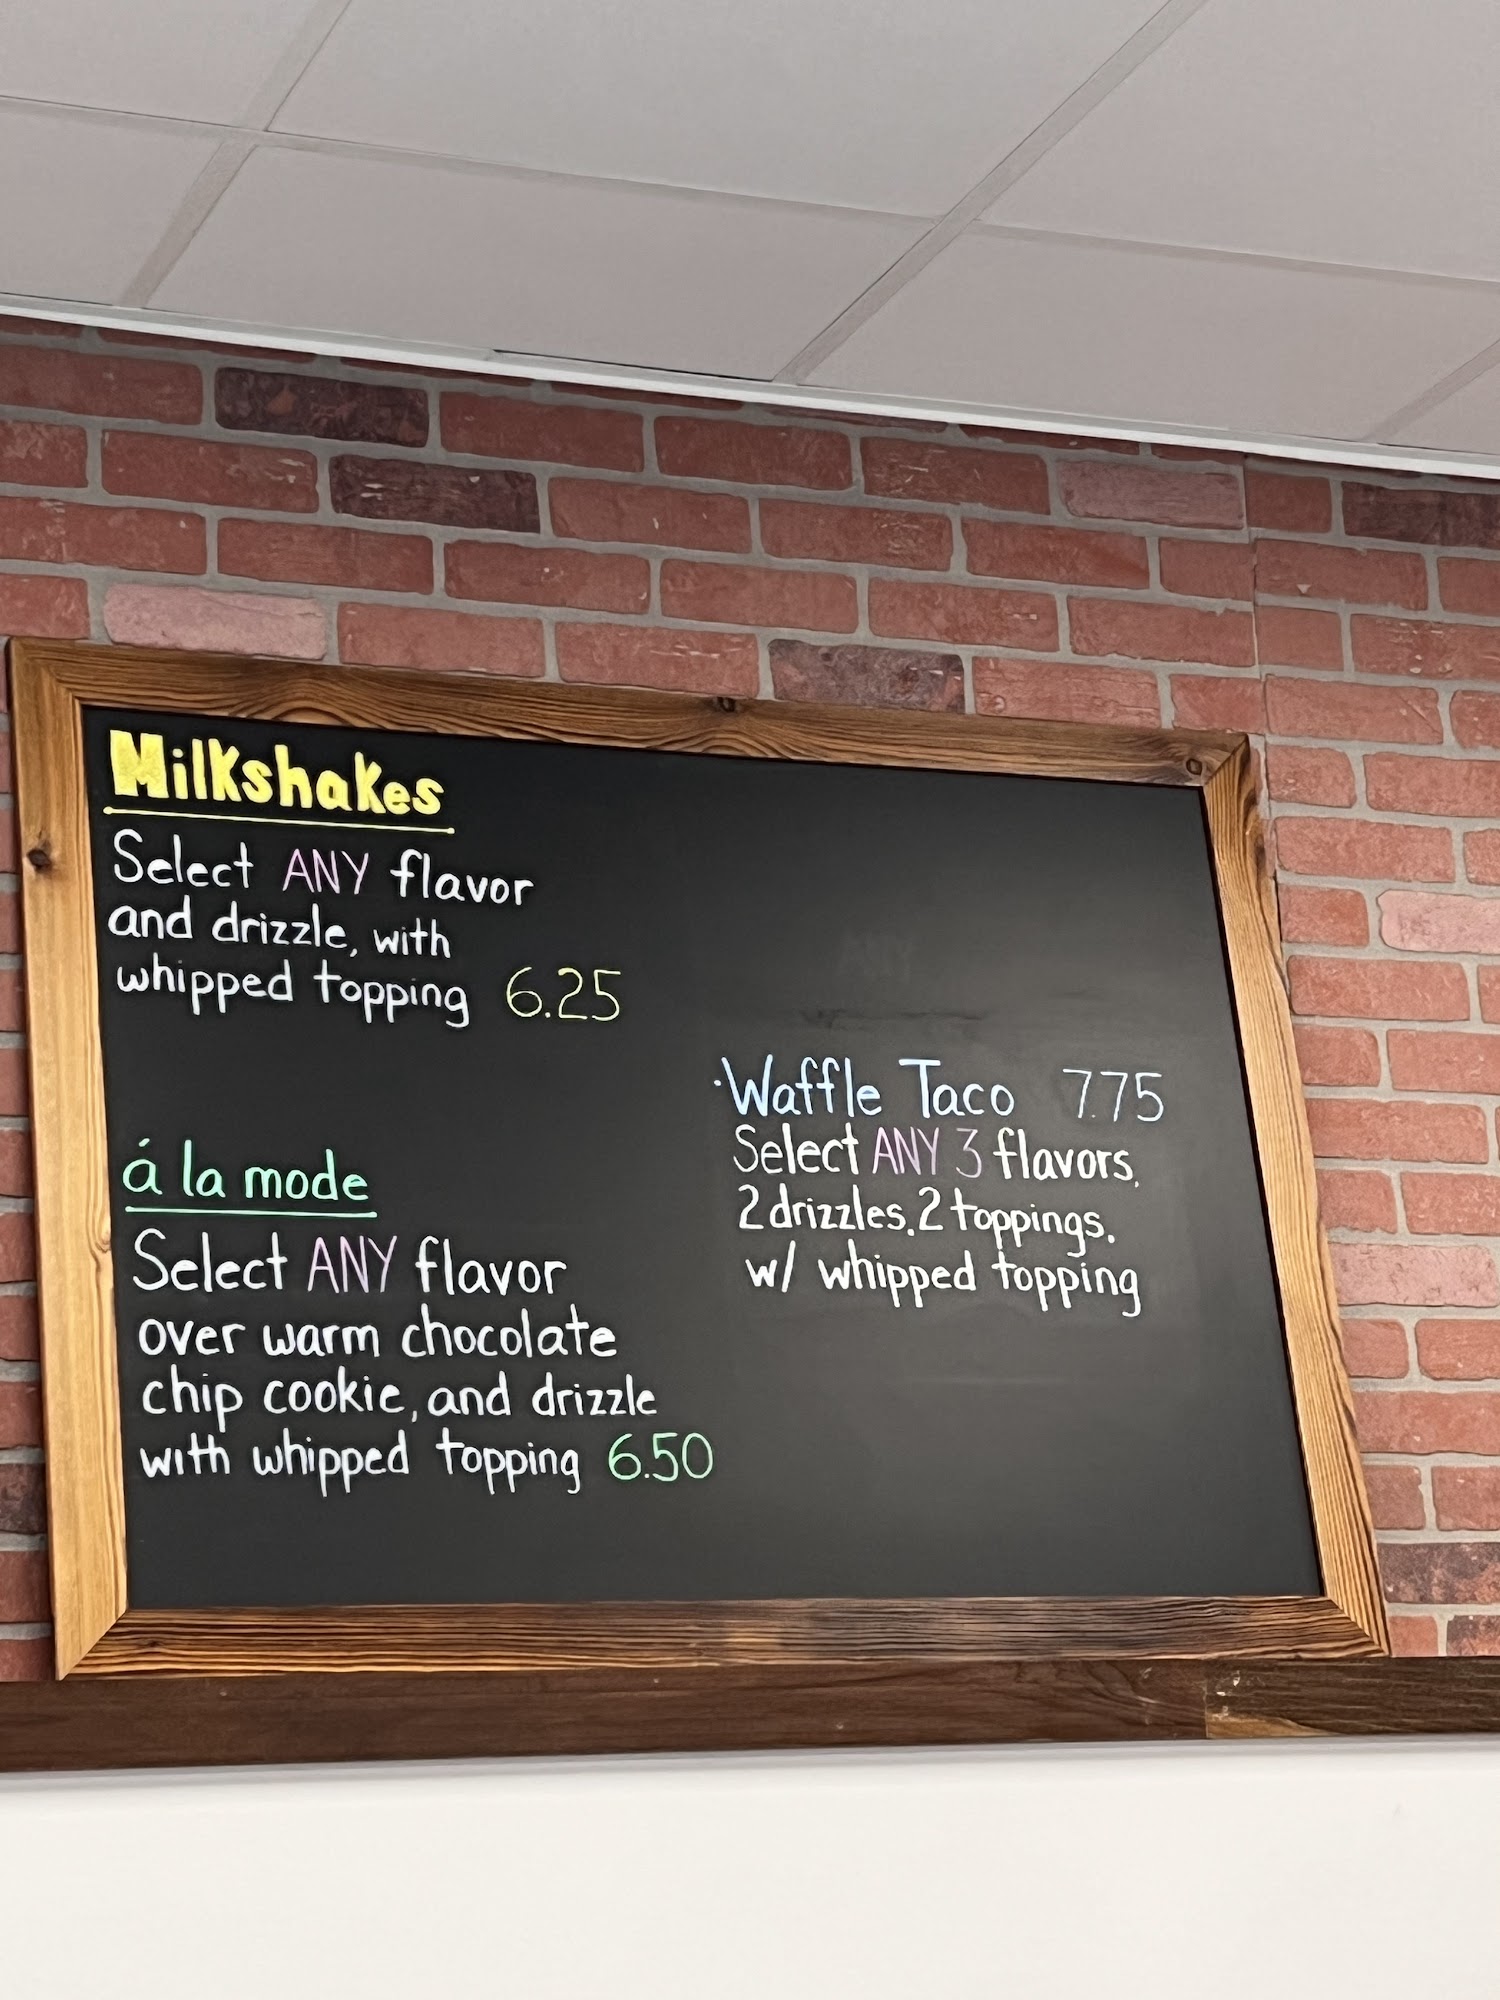 Milkshakes
Select ANY flavor
and drizzle, with
whipped topping 6.25
á la mode
Select ANY flavor
over warm chocolate
chip cookie, and drizzle
with whipped topping 6.50
·Waffle Taco 7.75
Select ANY 3 flavors,
2 drizzles. 2 toppings.
w/ whipped topping